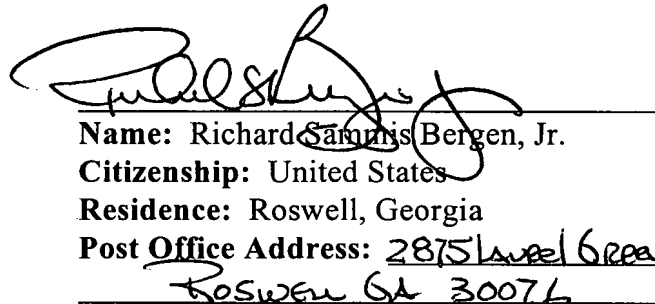 Richard S Bergen Jr
Name: Richard Sammis Bergen, Jr.
Citizenship: United States
Residence: Roswell, Georgia
Post Office Address: 2875 Laurel Gree
Roswell GA 30076